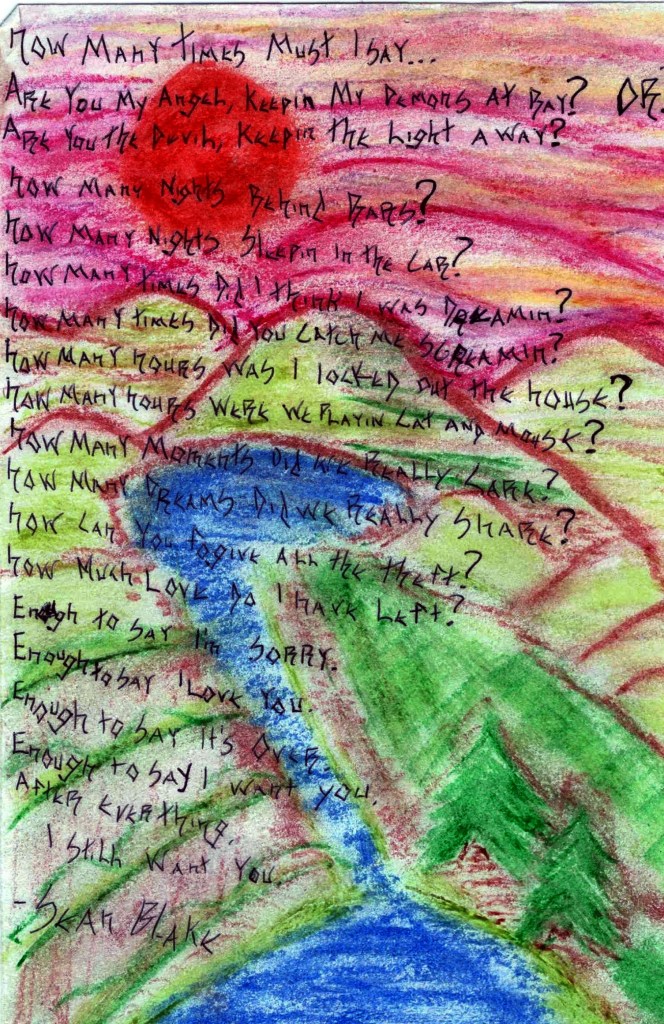 How Many Times Must I say...
Are You My Angel, Keepin My Demons At Bay? OR
Are You the Devil, Keepin the Light Away?
How Many Nights Behind Bars?
How Many Nights Sleepin in the Car?
How Many Times Did I think I was Dreamin?
How Many Times Did You Catch Me Screamin?
How Many Hours Was I locked out the House?
How Many Hours Were We Playin Cat and Mouse?
How Many Moments Did We Really Care?
How Many Dreams Did We Really Share?
How Can You Fogive All the theft?
How Much Love Do I have Left?
Enogh to Say I'm Sorry.
Enough to Say I Love You.
Enough to Say It's Over
Enough to Say I Want You.
After Everything.
I Still Want You.
- Sean Blake